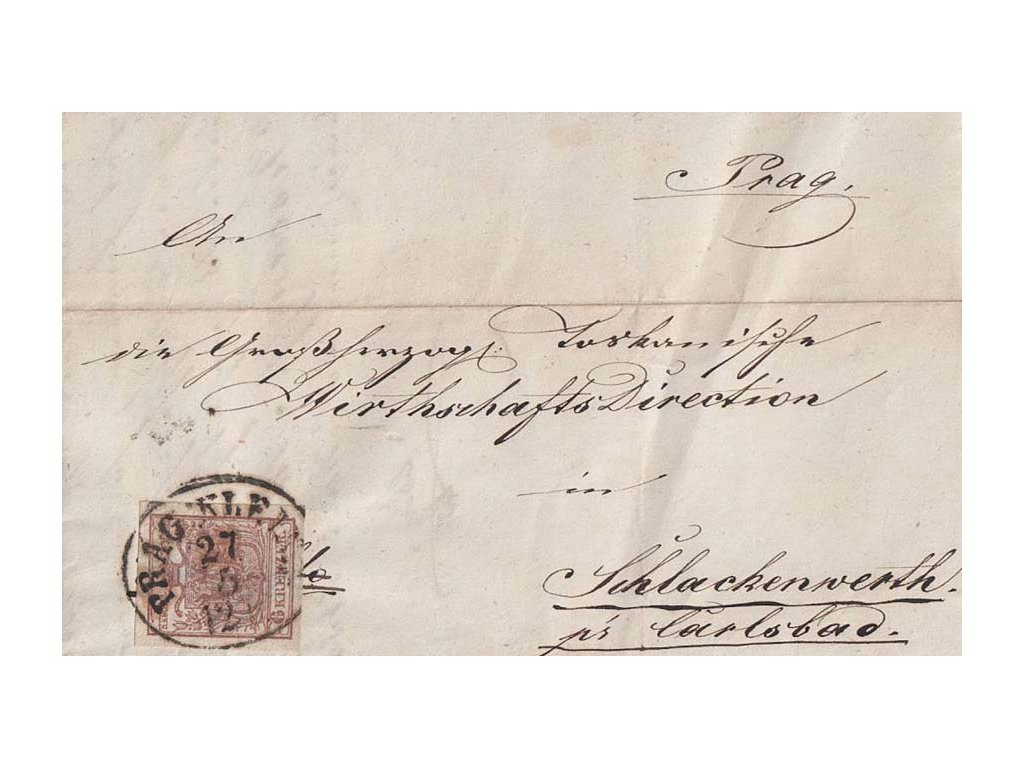 Prag.
An
die Großherzogl: Toskanische
Wirthschafts Direction
in
Schlackenwerth.
p/s Carlsbad.
PRAG KLEI
27
5
12
6 KREUZER